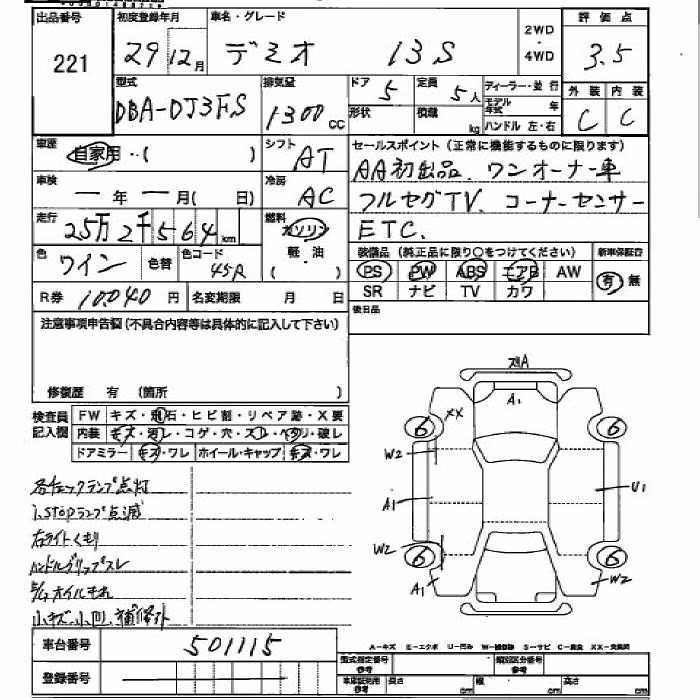 出品番号 初度登録年月 車名・グレード 2WD・4WD 評価点
221 29 12月 デミオ 13S 3.5
型式 排気量 ドア 定員 ディーラー・並行 外装 内装
DBA-DJ3FS 1300 CC 5 5人 モデル年式 年 C C
形状 積載 kg ハンドル 左・右
車歴 自家用・( ) シフト AT セールスポイント(正常に機能するものに限ります)
AA初出品、ワンオーナー車
車検 ー年ー月( 日) 冷房 AC フルセグTV、コーナーセンサー
走行 25万2千564km 燃料 ガソリン ETC.
軽・油
( )
色 ワイン 色替 色コード 45A
装備品(純正品に限り○をつけてください) 新車保証書
PS PW ABS エアB AW 有 無
SR ナビ TV カワ
R券 10040円 名変期限 月 日 後日品
注意事項申告欄(不具合内容等は具体的に記入して下さい)
修復歴 有 (箇所 )
検査員記入欄 FW キズ・飛石・ヒビ割・リペア跡・X要
内装 キズ・汚レ・コゲ・穴・スレ・ヘタリ・破レ
ドアミラー キズ・ワレ ホイール・キャップ キズ・ワレ
各チェックランプ点灯
i-STOPランプ点滅
右ライトくもり
ハンドルグリップスレ
オイルもれ
小キズ、小凹、補修跡
A
A1
XX
6 6
W2
A1 U1
W2
6 6
A1 W2
車台番号 501115
登録番号
A-キズ E-エクボ U-凹み W-補修跡 S-サビ C-腐食 XX-交換済
型式指定番号 参考 類別区分番号 参考
車庫証明用 参考 長さ cm 幅 cm 高さ cm